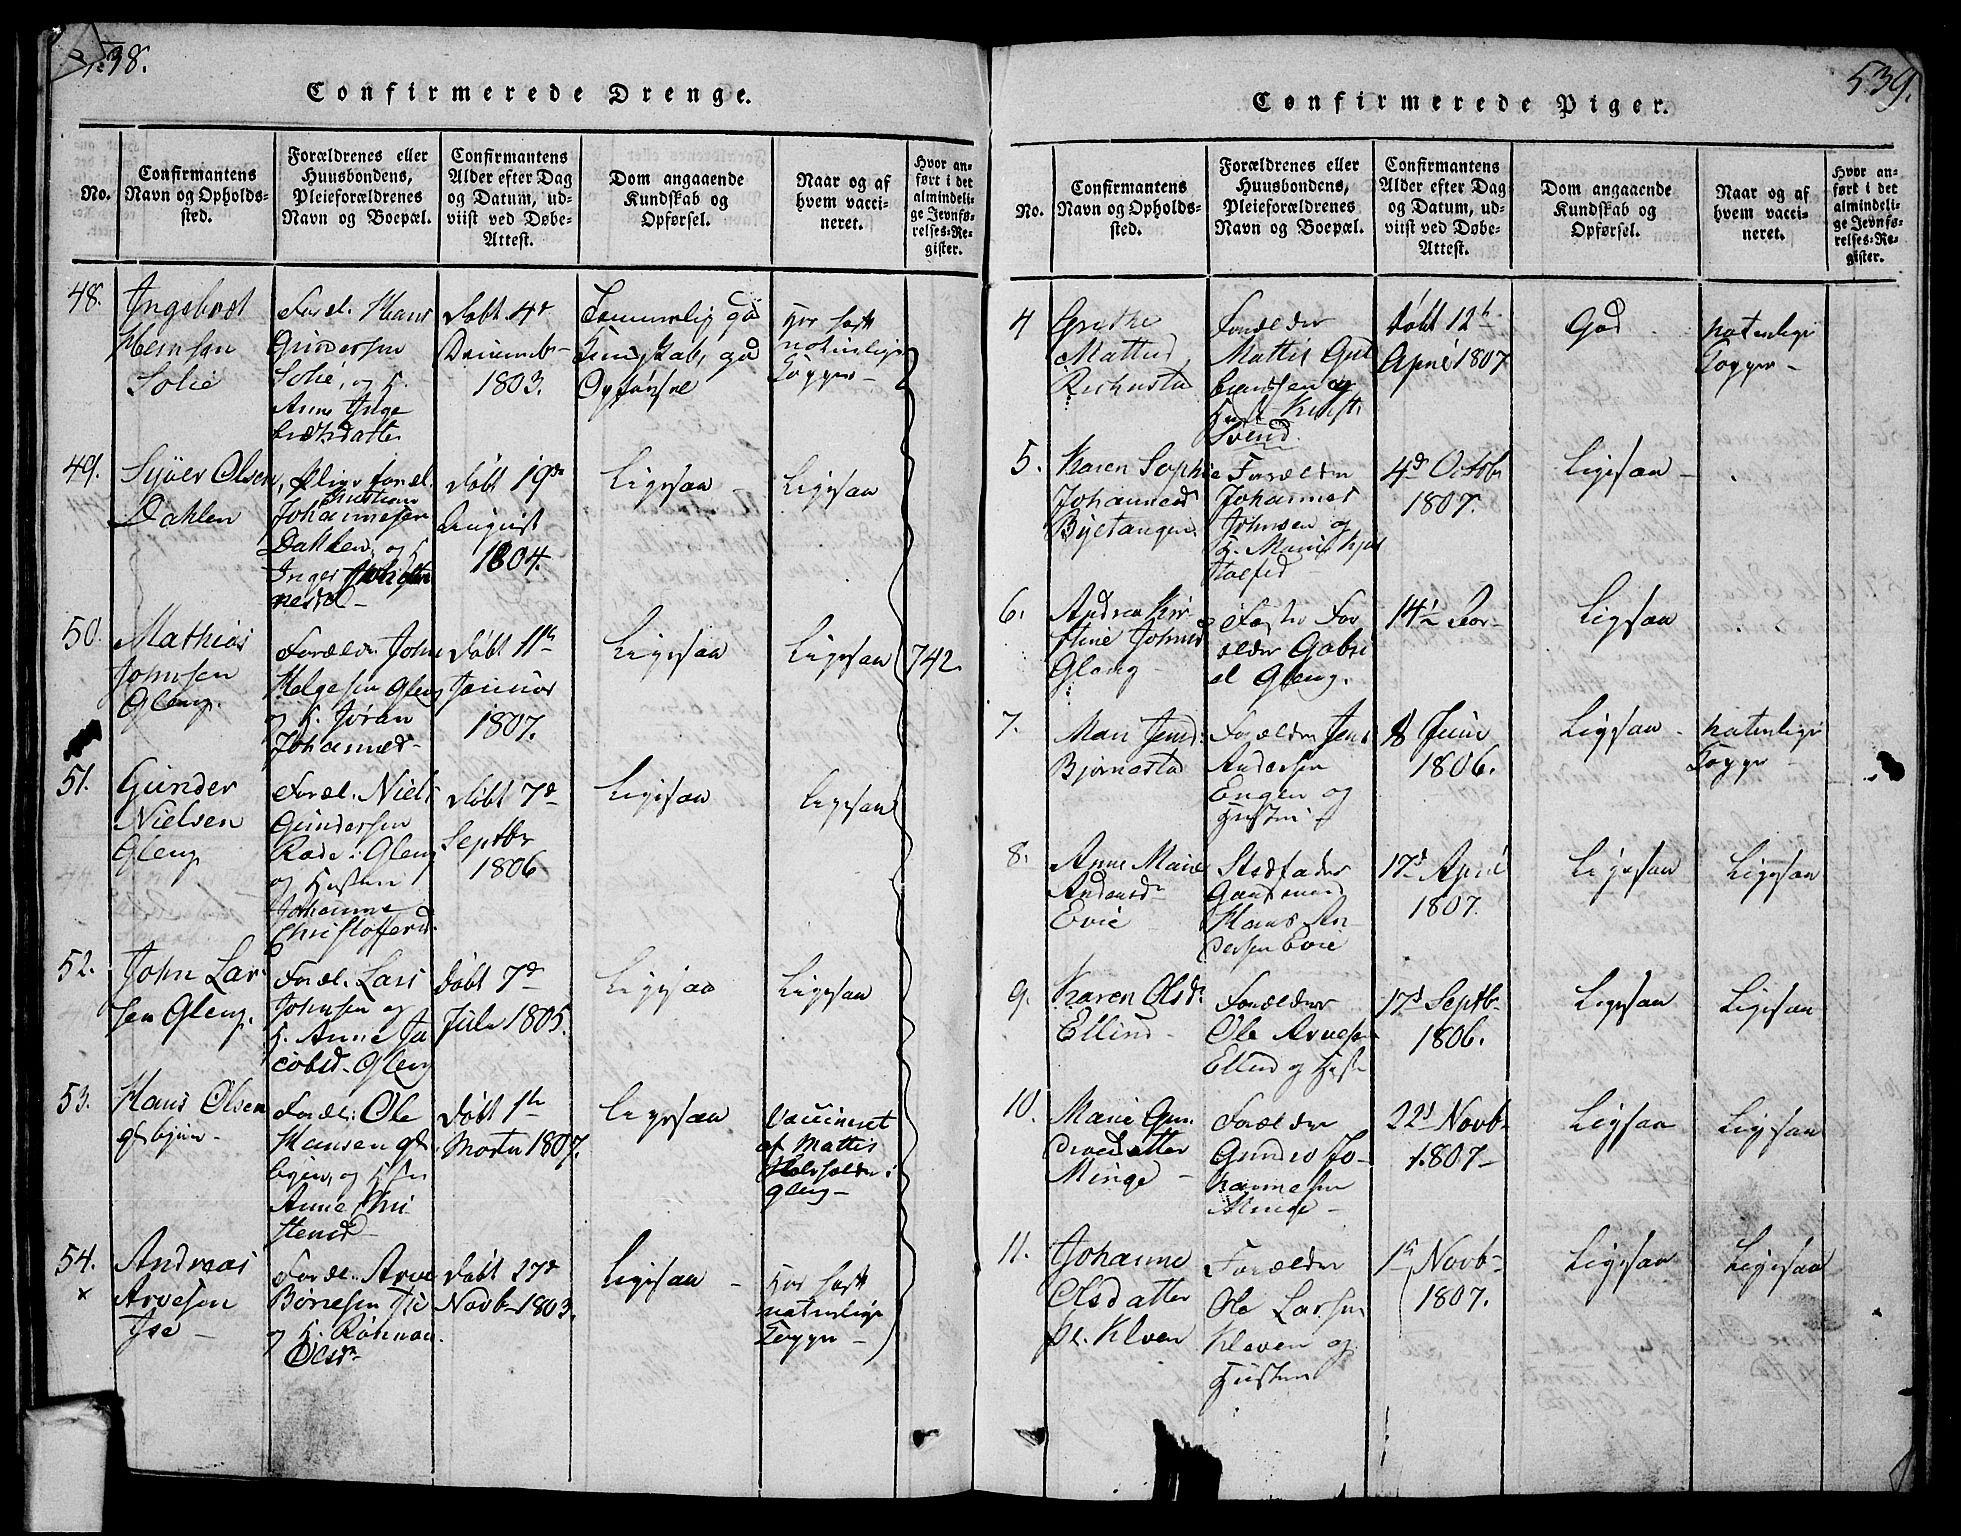 538.
Confirmerede Drenge.
No.
Confirmantens
Navn og Opholds-
sted.
Forældrenes eller
Huusbondens,
Pleieforældrenes
Navn og Boepæl.
Confirmantens
Alder efter Dag
og Datum, ud-
viist ved Døbe-
Attest.
Dom angaaende
Kundskab og
Opførsel.
Naar og af
hvem vacci-
neret.
Hvor an-
ført i det
almindeli-
ge Jevnfø-
relses-Re-
gister.
48.
Ingebret
Hansen
Solie
Foræl. Hans
Gundersen
Solie, og K.
Anne Inge
brethsdatter
Døbt 4de
Decembr
1803.
Temmelig god
Kundskab, god
Opførsel
Har havt
naturlige
Kopper
49.
Syver Olsen
Dahlen
Pleie foræl.
Christian
Johannesen
Dahlen, og K
Inger Johan
nesd
Døbt 19de
August
1804.
Ligesaa
Ligesaa
50.
Mathias
Johnsen
Gleng.
Foræld. John
Helgesen Gleng
og K. Jøran
Johannesd
Døbt 11te
Januar
1807.
Ligesaa
Ligesaa
742.
51.
Gunder
Nielsen
Gleng
Foræl. Niels
Gundersen
Rade i Gleng
og Husten
Johanne
Christoffersd.
Døbt 7de
Septbr
1806
Ligesaa
Ligesaa
52.
John Lar-
sen Gleng.
Foræl. Lars
Johnsen og
K. Anne Ja
cobsd. Gleng
Døbt 7de
Julii 1805.
Ligesaa
Ligesaa
53.
Hans Olsen
Foræl: Ole
Hansen
og
Anne Chri
stensd
Døbt 1te
Martii 1807.
Ligesaa
Vaccineret
af Mattis
i
Gleng
54.
x
Andreas
Arvesen
Ise
Foræl. Arve
Børresen Ise
og K. Rønnau
Olsdr
Døbt 27de
Novbr 1803.
Ligesaa
Har havt
naturlige
Kopper
539.
Confirmerede Piger.
No.
Confirmantens
Navn og Opholds-
sted.
Forældrenes eller
Huusbondens,
Pleieforældrenes
Navn og Boepæl.
Confirmantens
Alder efter Dag
og Datum, ud-
viist ved Døbe-
Attest.
Dom angaaende
Kundskab og
Opførsel.
Naar og af
hvem vacci-
neret.
Hvor an-
ført i det
almindeli-
ge Jevnfø-
relses-Re-
gister.
4
Grethe
Mattisd
Forælder
Mattis Gul
brandsen og
Svend.
Døbt 12te
April 1807
God
naturlige
Kopper
5.
Karen Sophie
Johannesd
Byetangen
Forælder
Johannes
Johnsen og
K. Marie
4de Octbr
1807.
Ligesaa
6.
Andrea Kir
stine Johnsd
Gleng
Foster For
ælder Gabri
el Gleng.
14 1/2 Aar
Ligesaa
7.
Mari Jensd
Bjørnestad
Forælder Jens
Andersen
Engen og
Husten
8 Junii
1806.
Ligesaa
naturlige
Kopper
8.
Anne Marie
Andersdr
Evie
Stedfader
Gaardmand
Hans An
dersen Evie
17d April
1807.
Ligesaa
Ligesaa
9.
Karen Olsdr
Ellind
Forælder
Ole Arvesen
Ellind og
17d Septbr
1806.
Ligesaa
Ligesaa
10.
Marie Gun
dersdatter
Minge
Forælder
Gunder Jo
hannesen
Minge
22d Novbr
1807
Ligesaa
Ligesaa
11.
Johanne
Olsdatter
Kløven
Forælder
Ole Larsen
Kløven og
Husten
1te Novbr
1807.
Ligesaa
Ligesaa